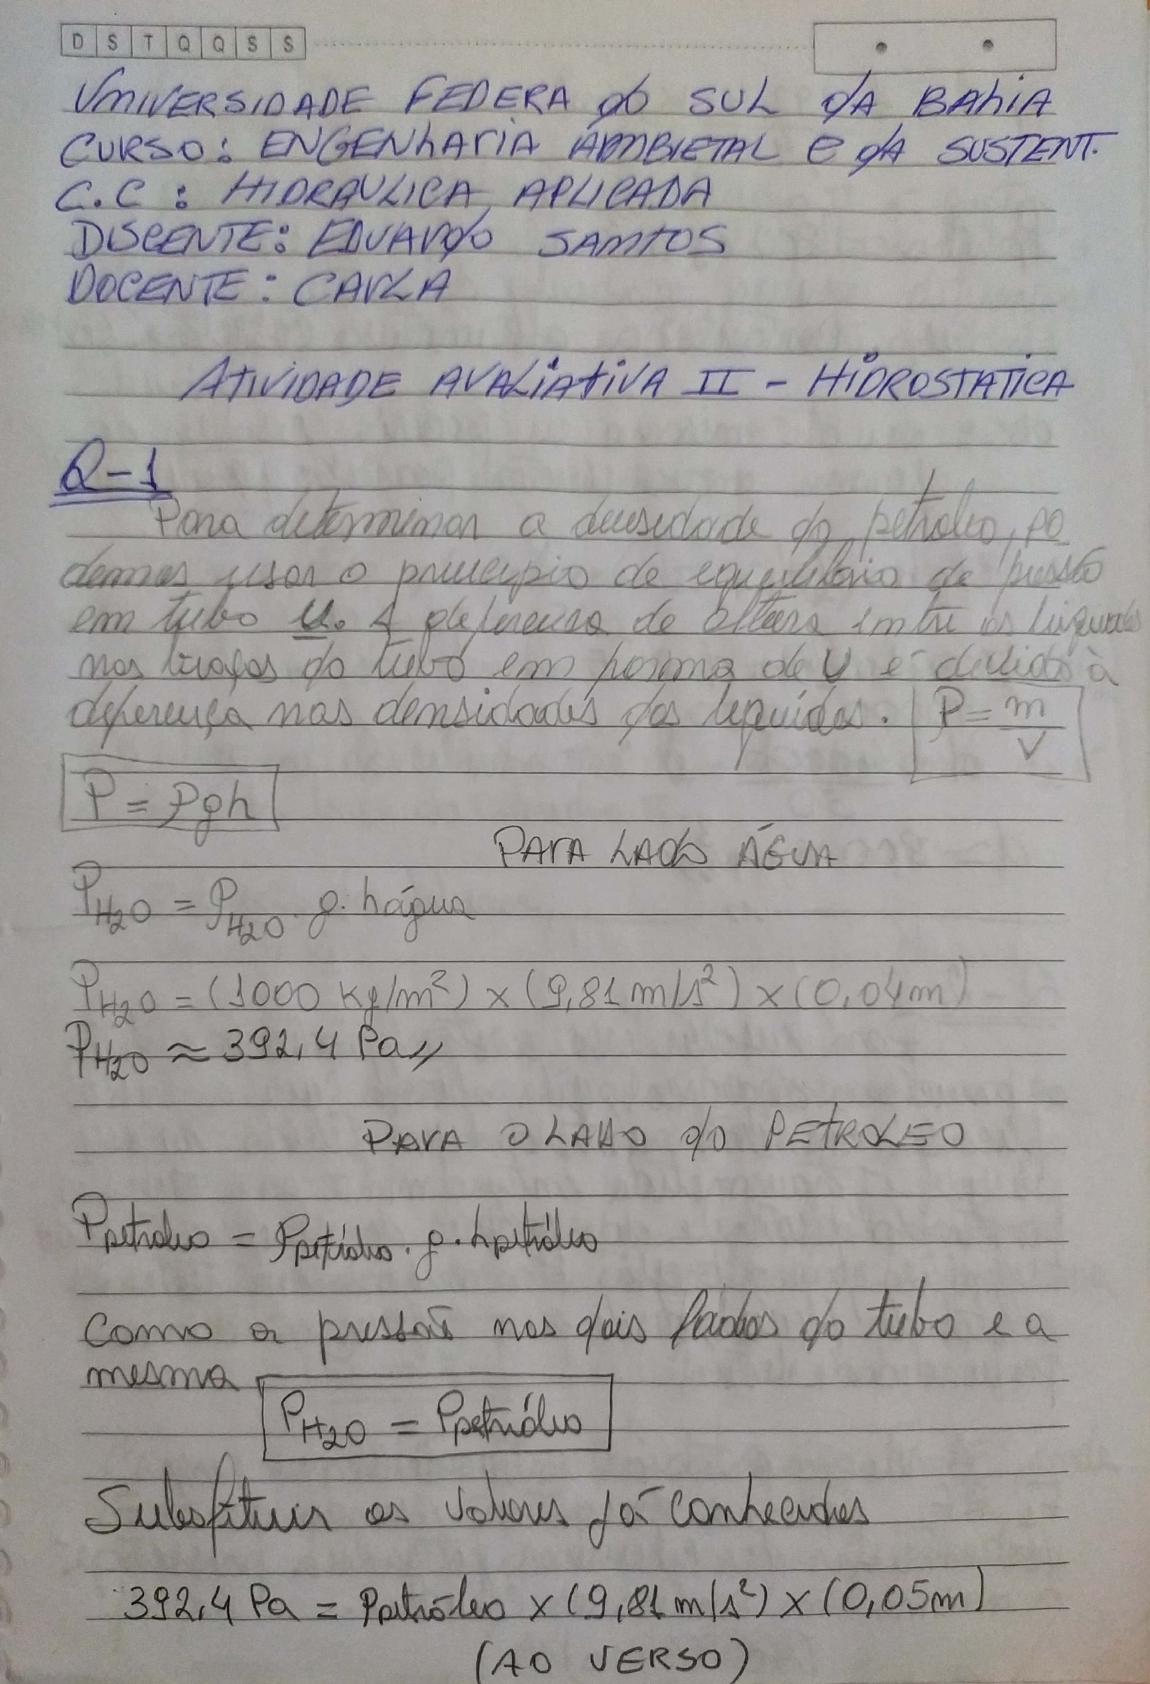 D S T Q Q S S
UNIVERSIDADE FEDERA do SUL dA BAhiA
CURSO: ENGENhAriA AMBIETAL E dA SUSTENT.
C.C : HIDRAULICA APLICADA
DISCENTE: EDUARdo SANTOS
DOCENTE: CARLA
ATIVIDADE AVALIATIVA II - HIDROSTATICA
Q-1
Para determinar a densidade do petroleo, po
demos usar o principio de equilibrio de pressão
em tubo U. A diferensa de altura entre os liquidos
nos braços do tubo em forma de U e devido à
diferença nas densidades dos liquídos. P = m/V
P = ρgh
PARA LADO ÁGUA
P H2O = ρ H2O . g. hágua
P H2O = (1000 kg/m²) x (9,81 m/s²) x (0,04m)
P H2O ≈ 392,4 Pa//
PARA O LADO do PETROLEO
Ppetroleo = ρpetróleo . g . hpetróleo
Como a pressão nos dois lados do tubo e a
mesma
P H2O = Ppetróleo
Substituir os valores já conhecidos
392,4 Pa = ρpetróleo x (9,81 m/s²) x (0,05m)
(AO VERSO)